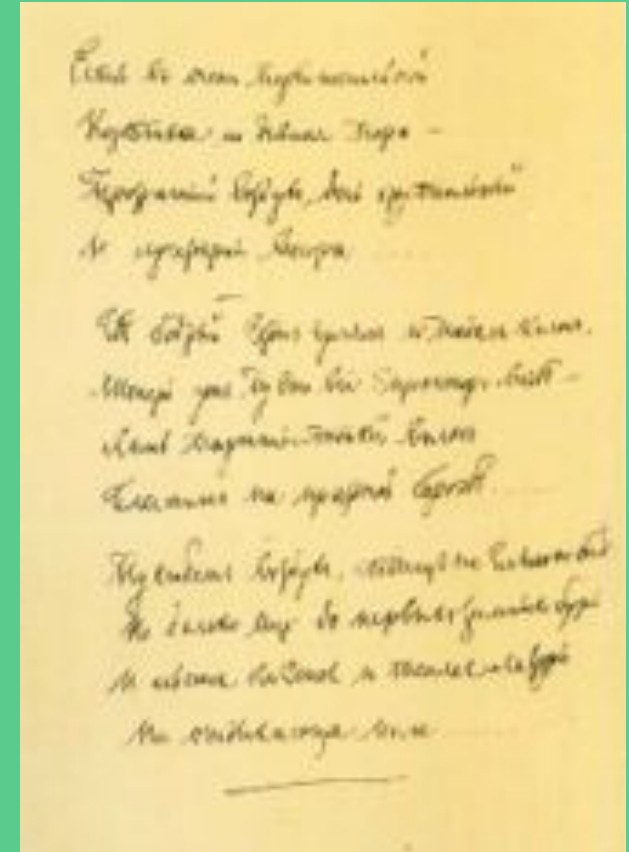 Есть в осени первоначальной
Короткая но дивная пора –
Прозрачный воздух, день хрустальный
И лучезарны вечера ....
Где бодрый серп гулял и падал колос.
уж пусто все простор везде –
Лишь паутины тонкий волос
Блестит на праздной ....
Пустеет воздух, птиц не слышно
Но далеко еще до первых зимних бурь
И льется и теплая лазурь
На отдыхающее поле ....